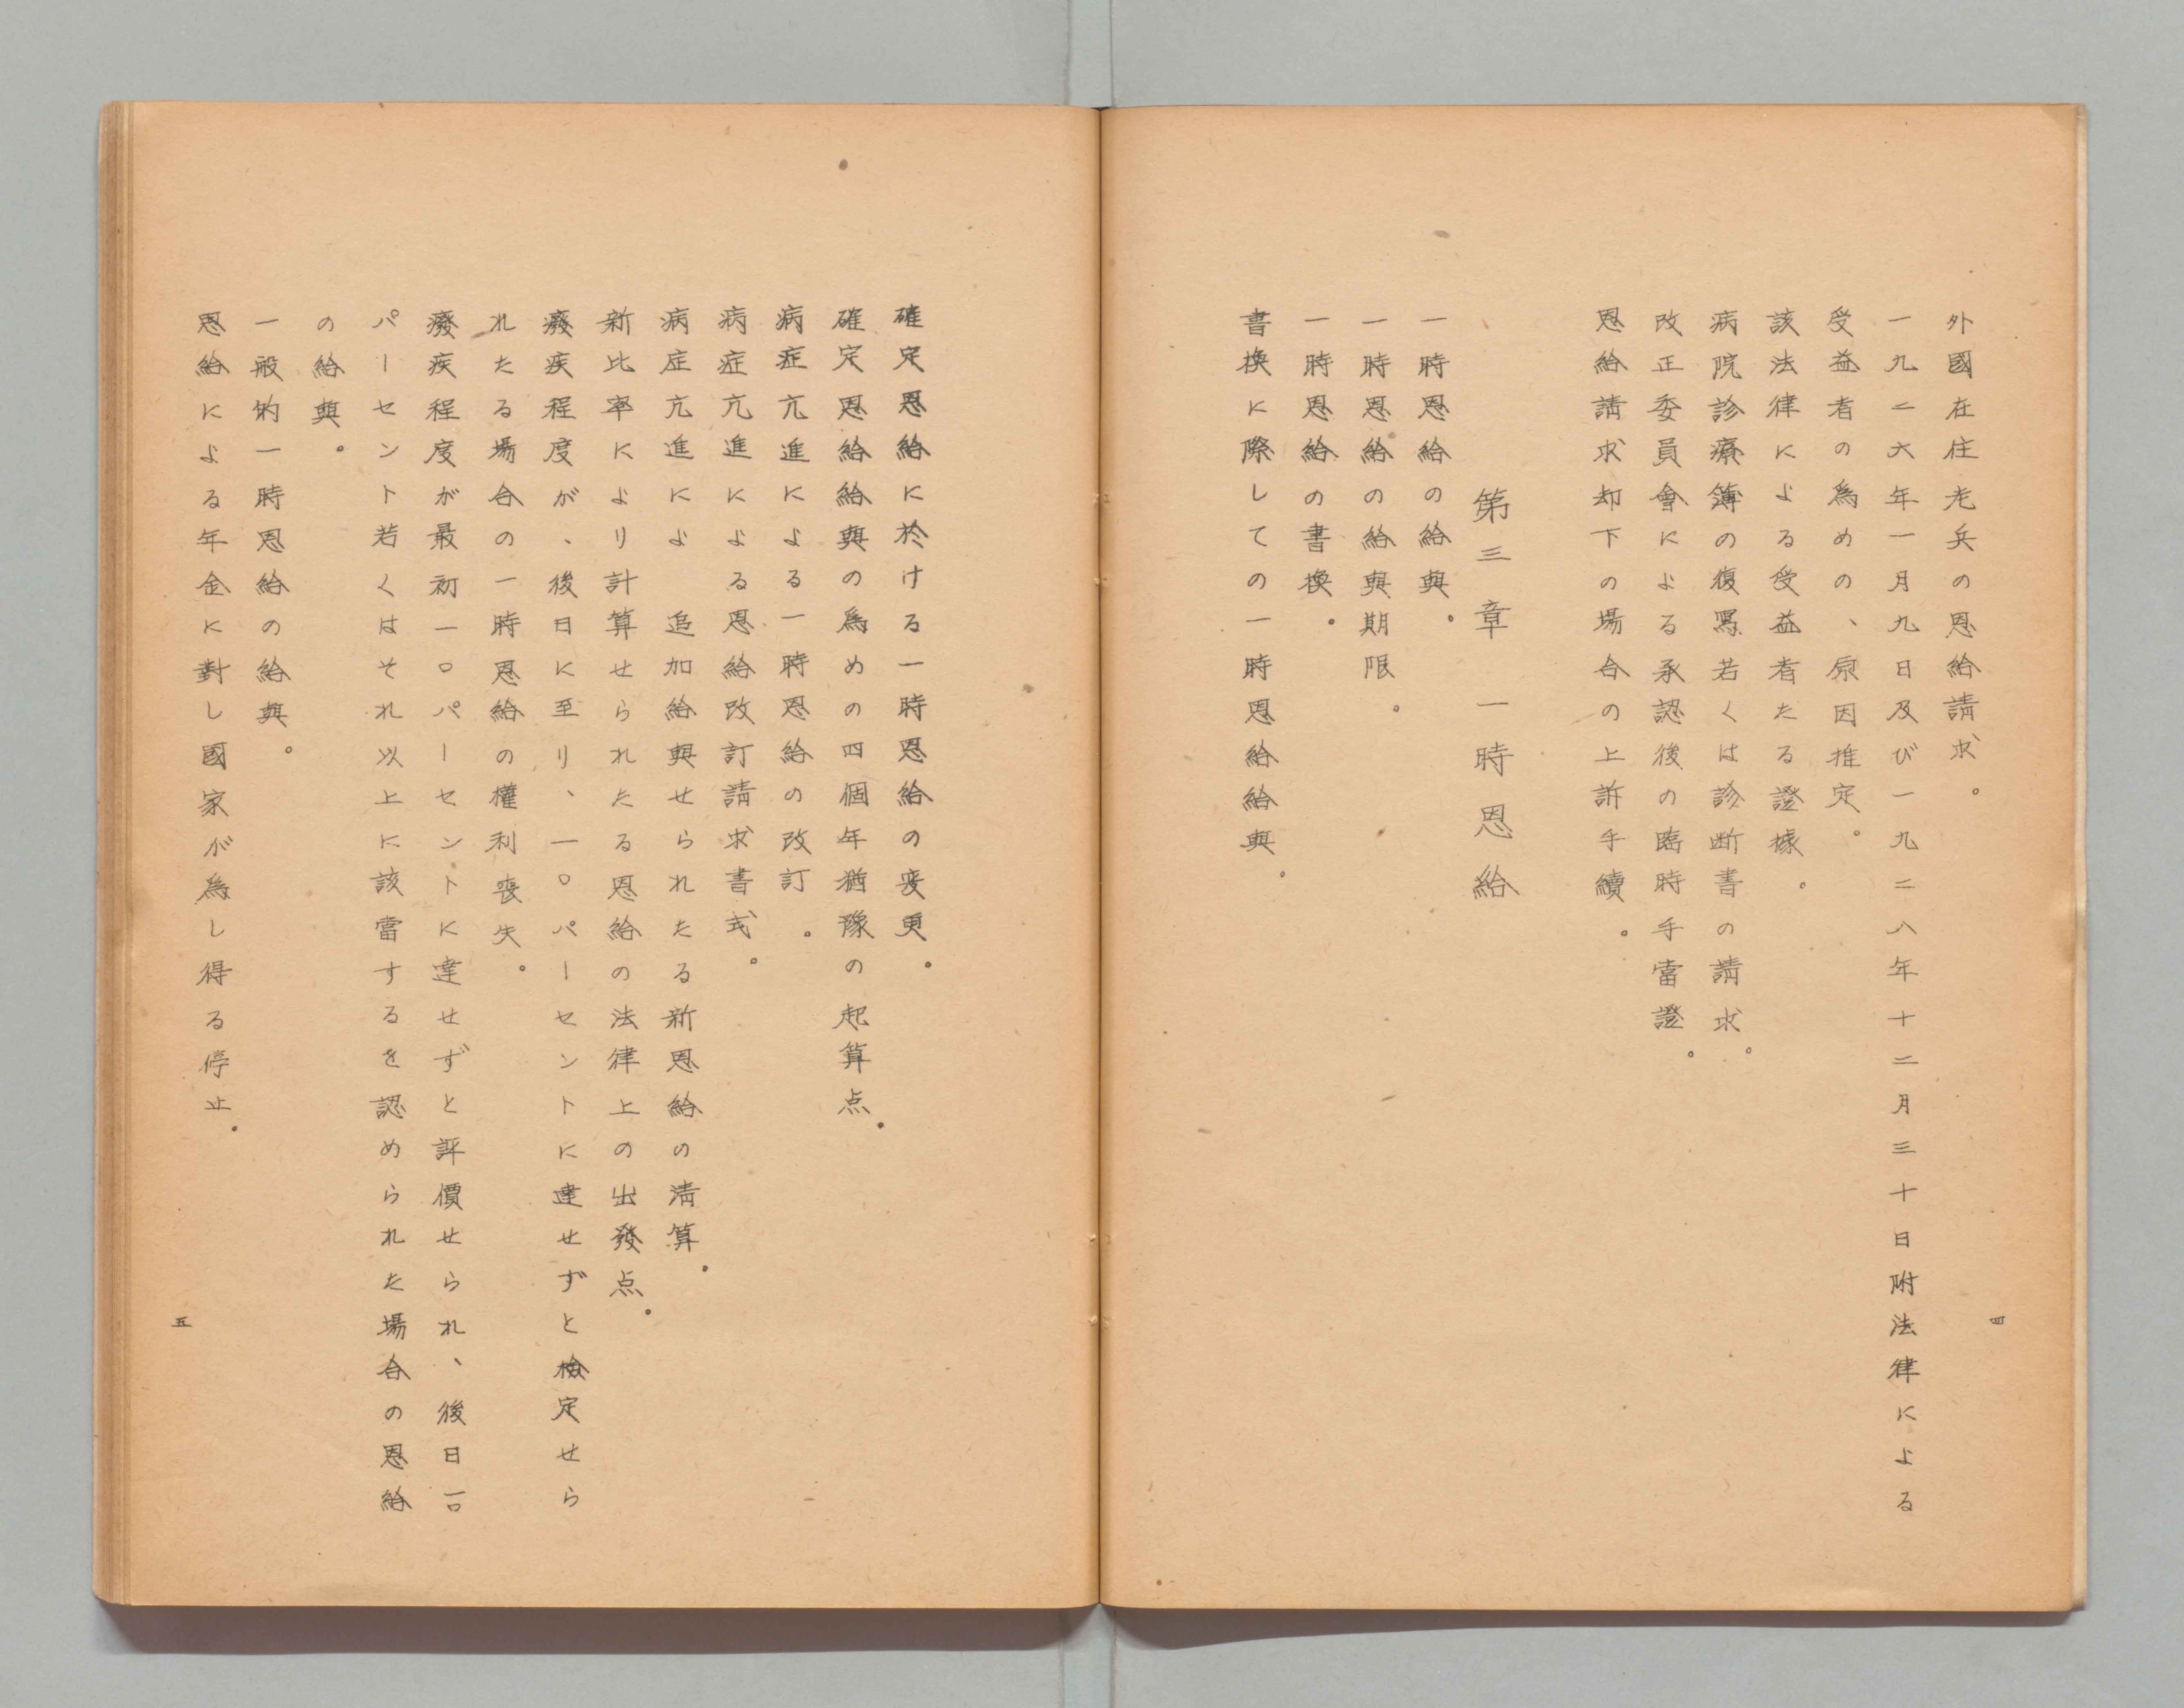 外國在住老兵の恩給請求。
一九二六年一月九日及び一九二八年十二月三十日附法律による
受益者の為めの、原因推定。
該法律による受益者たる證據。
病院診療簿の復寫若くは診断書の請求。
改正委員會による承認後の臨時手當證。
恩給請求却下の場合の上訴手續。
第三章 一時恩給
一時恩給の給與。
一時恩給の給與期限。
一時恩給の書換。
書換に際しての一時恩給給與。
四
確定恩給に於ける一時恩給の変更。
確定恩給給與の為めの四個年猶豫の起算点。
病症亢進による一時恩給の改訂。
病症亢進による恩給改訂請求書式。
病症亢進によ 追加給與せられたる新恩給の淸算。
新比率により計算せられたる恩給の法律上の出發点。
癈疾程度が、後日に至り、一〇パーセントに達せずと檢定せら
れたる場合の一時恩給の權利喪失。
癈疾程度が最初一〇パーセントに達せずと評價せられ、後日一〇
パーセント若くはそれ以上に該當するを認められた場合の恩給
の給與。
一般的一時恩給の給與。
恩給による年金に對し國家が為し得る停止。
五